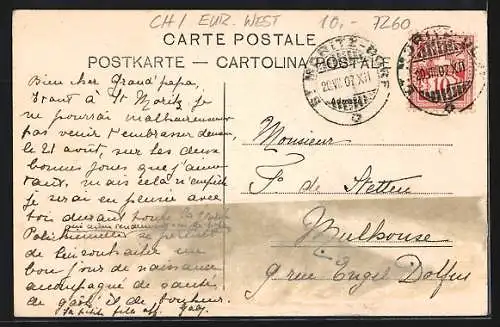 CH / EUR. WEST 10,- 7260
CARTE POSTALE
POSTKARTE — CARTOLINA POSTALE
ST MORITZ-DORF
20.VIII.07.XII
ST MORITZ-DORF
20.VIII.07.XII
Bien cher Grand'papa,
Etant à St Moritz je
ne pourrai malheureusement
pas venir t'embrasser demain,
le 21 août, sur les deux
bonnes joues que j'aime
tant, mais cela n'empêche
je serai en pensée avec
toi durant toute la
Polichinelles se permet
de te souhaiter un
bon jour de naissance
accompagné de santé
de gaîté, et de bonheur.
Ta petite fille aff. Gaby.
Monsieur
F. de Stetten
Mulhouse
9 rue Engel Dolfus